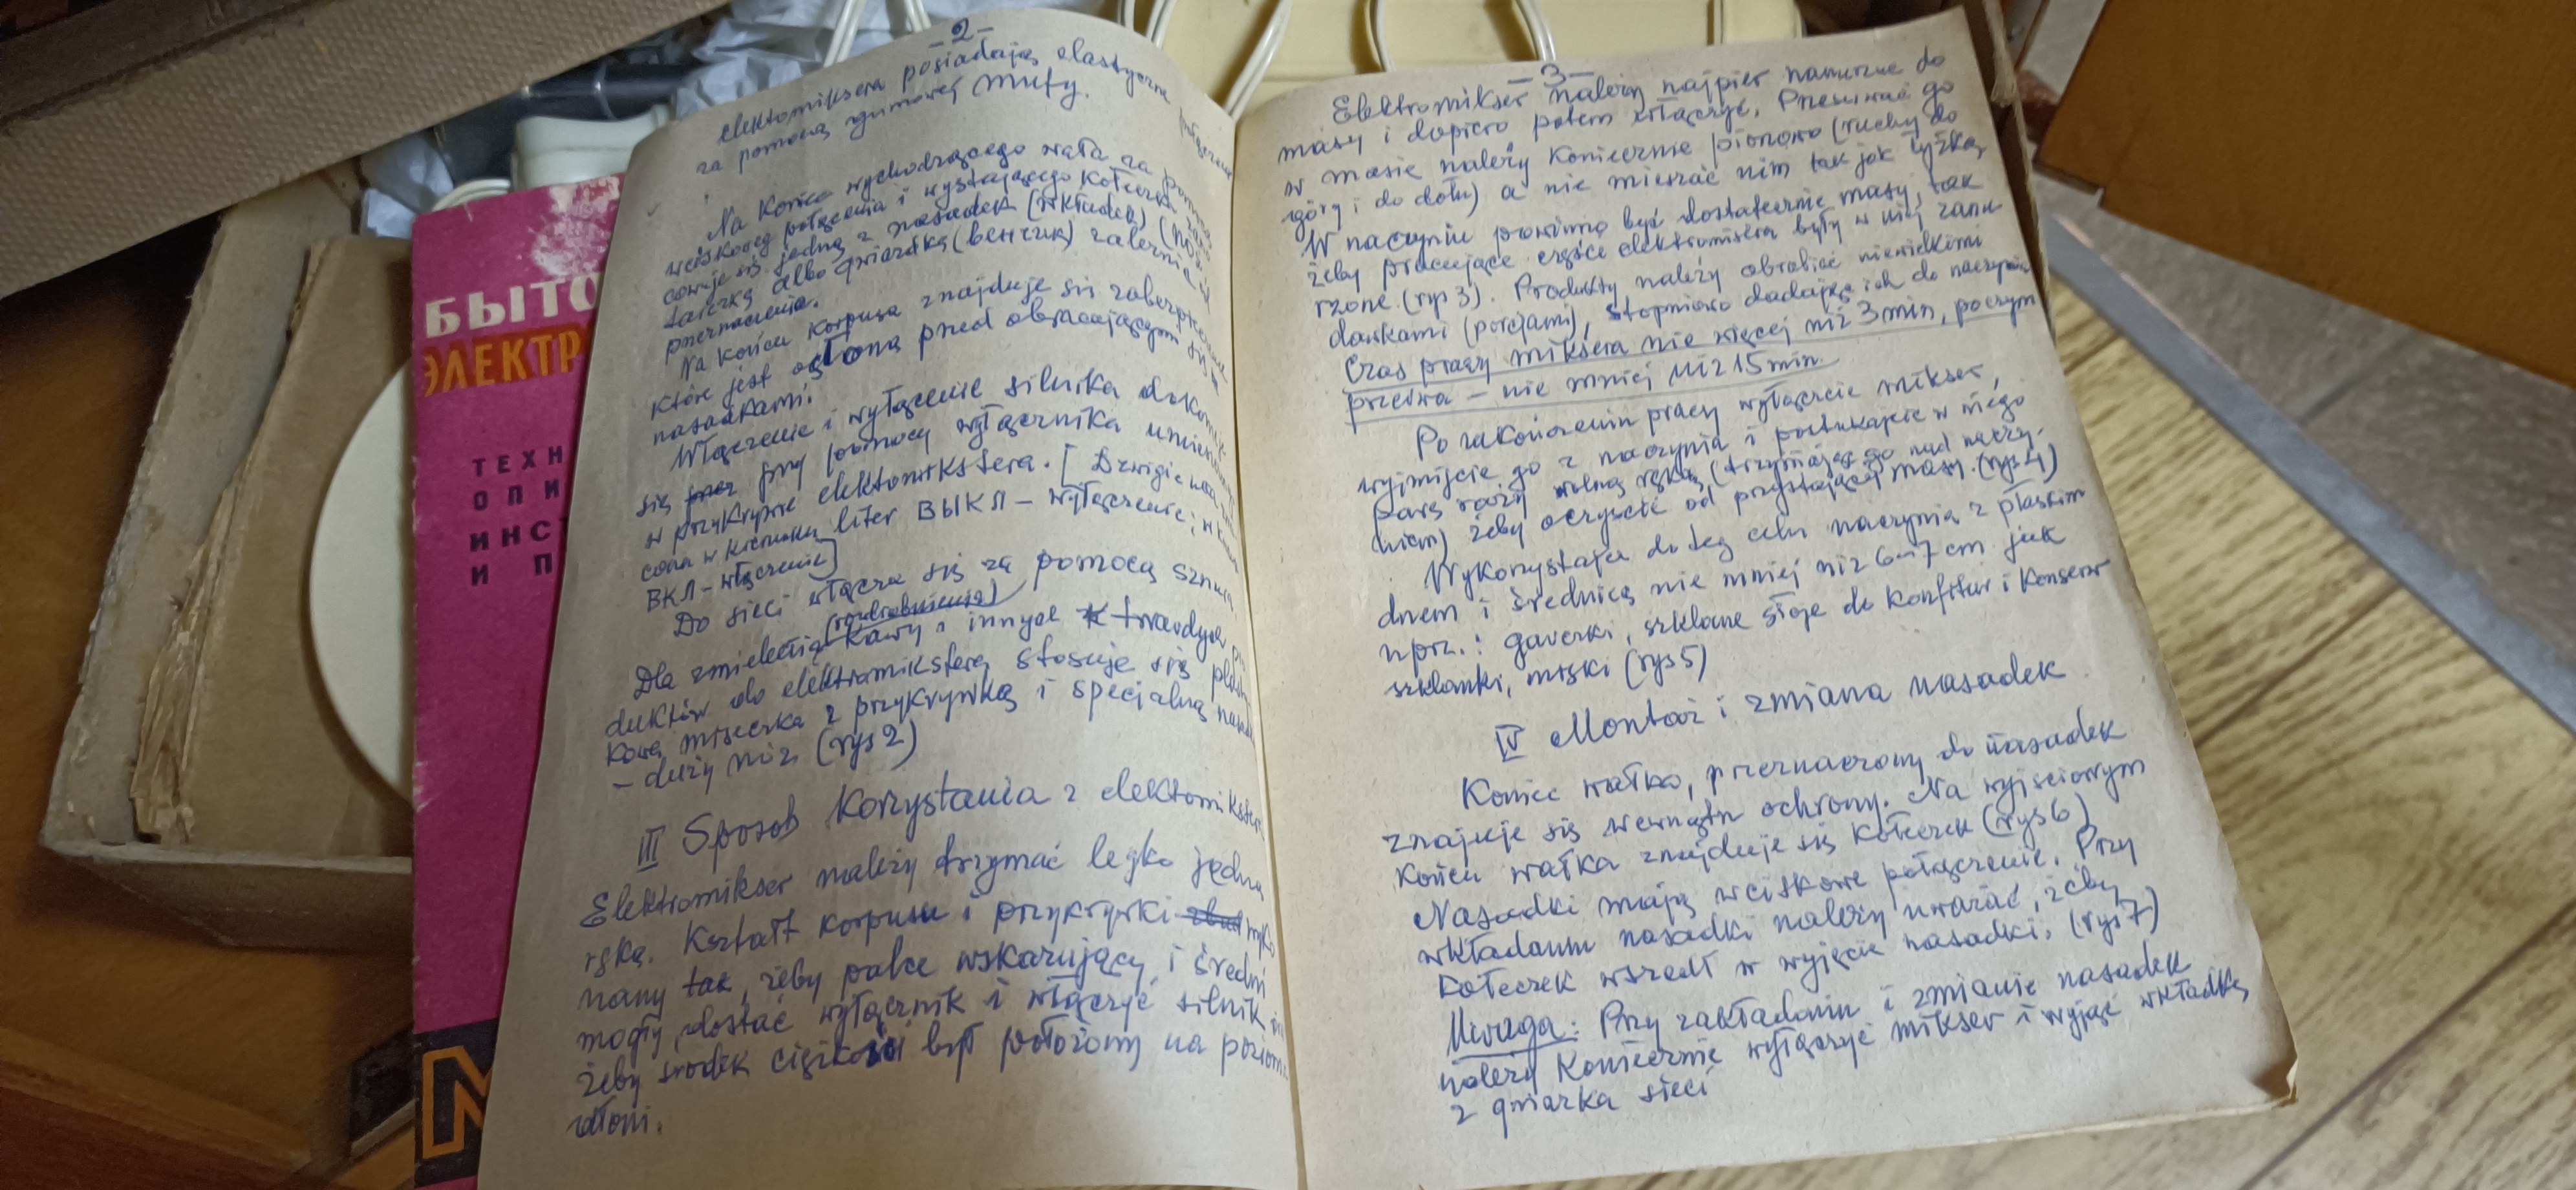 БЫТО
ЭЛЕКТР
ТЕХН
ОПИ
ИНС
И П
- 2 -
elektomiksera posiadają elastyczne połączenie
za pomocą zgumowej mufy.
Na końcu wychodzącego wała za pomocą
weiskoweg połączenia i wystającego kołeczka
cowuje się jedną z nasadek (wkładek) (nóż
tarczką albo gwiazdką (венчик) zależnie od
przeznaczenia.
Na końcu korpusa znajduje się zabezpieczenie
które jest osłoną przed obracającymi się
nasadkami.
Włączenie i wyłączenie silnika dokonuje
się przez przy pomocy wyłącznika umieszczonego
w przykrywie elektomiksera. [Dzwignia
cona w kierunku liter ВЫКЛ - wyłączenie, w
ВКЛ - włączenie]
Do sieci włącza się za pomocą sznura.
(rozdrobnienia)
Dla zmielenia kawy i innych twardych pro
duktów do elektromiksera stosuje się plasti
kowa miseczka z przykrywką i specjalną nasadk
- duży nóż (rys 2)
III Sposób korzystania z elektomiksera
Elektromikser należy trzymać legko jedną
ręką. Kształt korpusu i przykrywki wyko
nany tak, żeby palce wskazujący i średni
mogły dostać wyłącznik i włączyć silnik
żeby środek ciężkości był położony na poziomie
dłoni.
- 3 -
Elektromikser należy najpier nanurzne do
masy i dopiero potem włączyć. Przesuwać go
w masie należy koniecznie pionowo (ruchy do
góry i do dołu) a nie mieszać nim tak jak łyżką
W naczyniu powinno być dostatecznie masy, tak
żeby pracujące części elektromisera były w niej zanu
rzone. (rys 3). Produkty należy obrabiać niewielkimi
dawkami (porcjami), stopniowo dadając ich do naczynia
Czas pracy miksera nie więcej niż 3 min, poczym
przerwa - nie mniej niż 15 min.
Po zakończeniu pracy wyłączcie mikser,
wyjmijcie go z naczynia i postukajcie w niego
parę razy wolną ręką, (trzymając go nad naczy-
niem) żeby oczyścić od przystającej masy. (rys 4)
Wykorzystajcie do teg celu naczynia z płaskim
dnem i średnicą nie mniej niż 6-7 cm jak
nprz.: garczki, szklane słoje do konfitur i konserw
szklanki, miski (rys 5)
IV Montaż i zmiana nasadek
Koniec wałka, przeznaczony do nasadek
znajuje się wewnątrz ochrony. Na wyjściowym
końcu wałka znajduje się kołeczek (rys 6)
Nasadki mają wciskowe połączenie. Przy
wkładaniu nasadki należy uważać, żeby
kołeczek wszedł w wyjęcie nasadki. (rys 7)
Uwaga: Przy zakładaniu i zmianie nasadek
należy koniecznie wyłączyć mikser i wyjąć wkładkę
z gniazka sieci